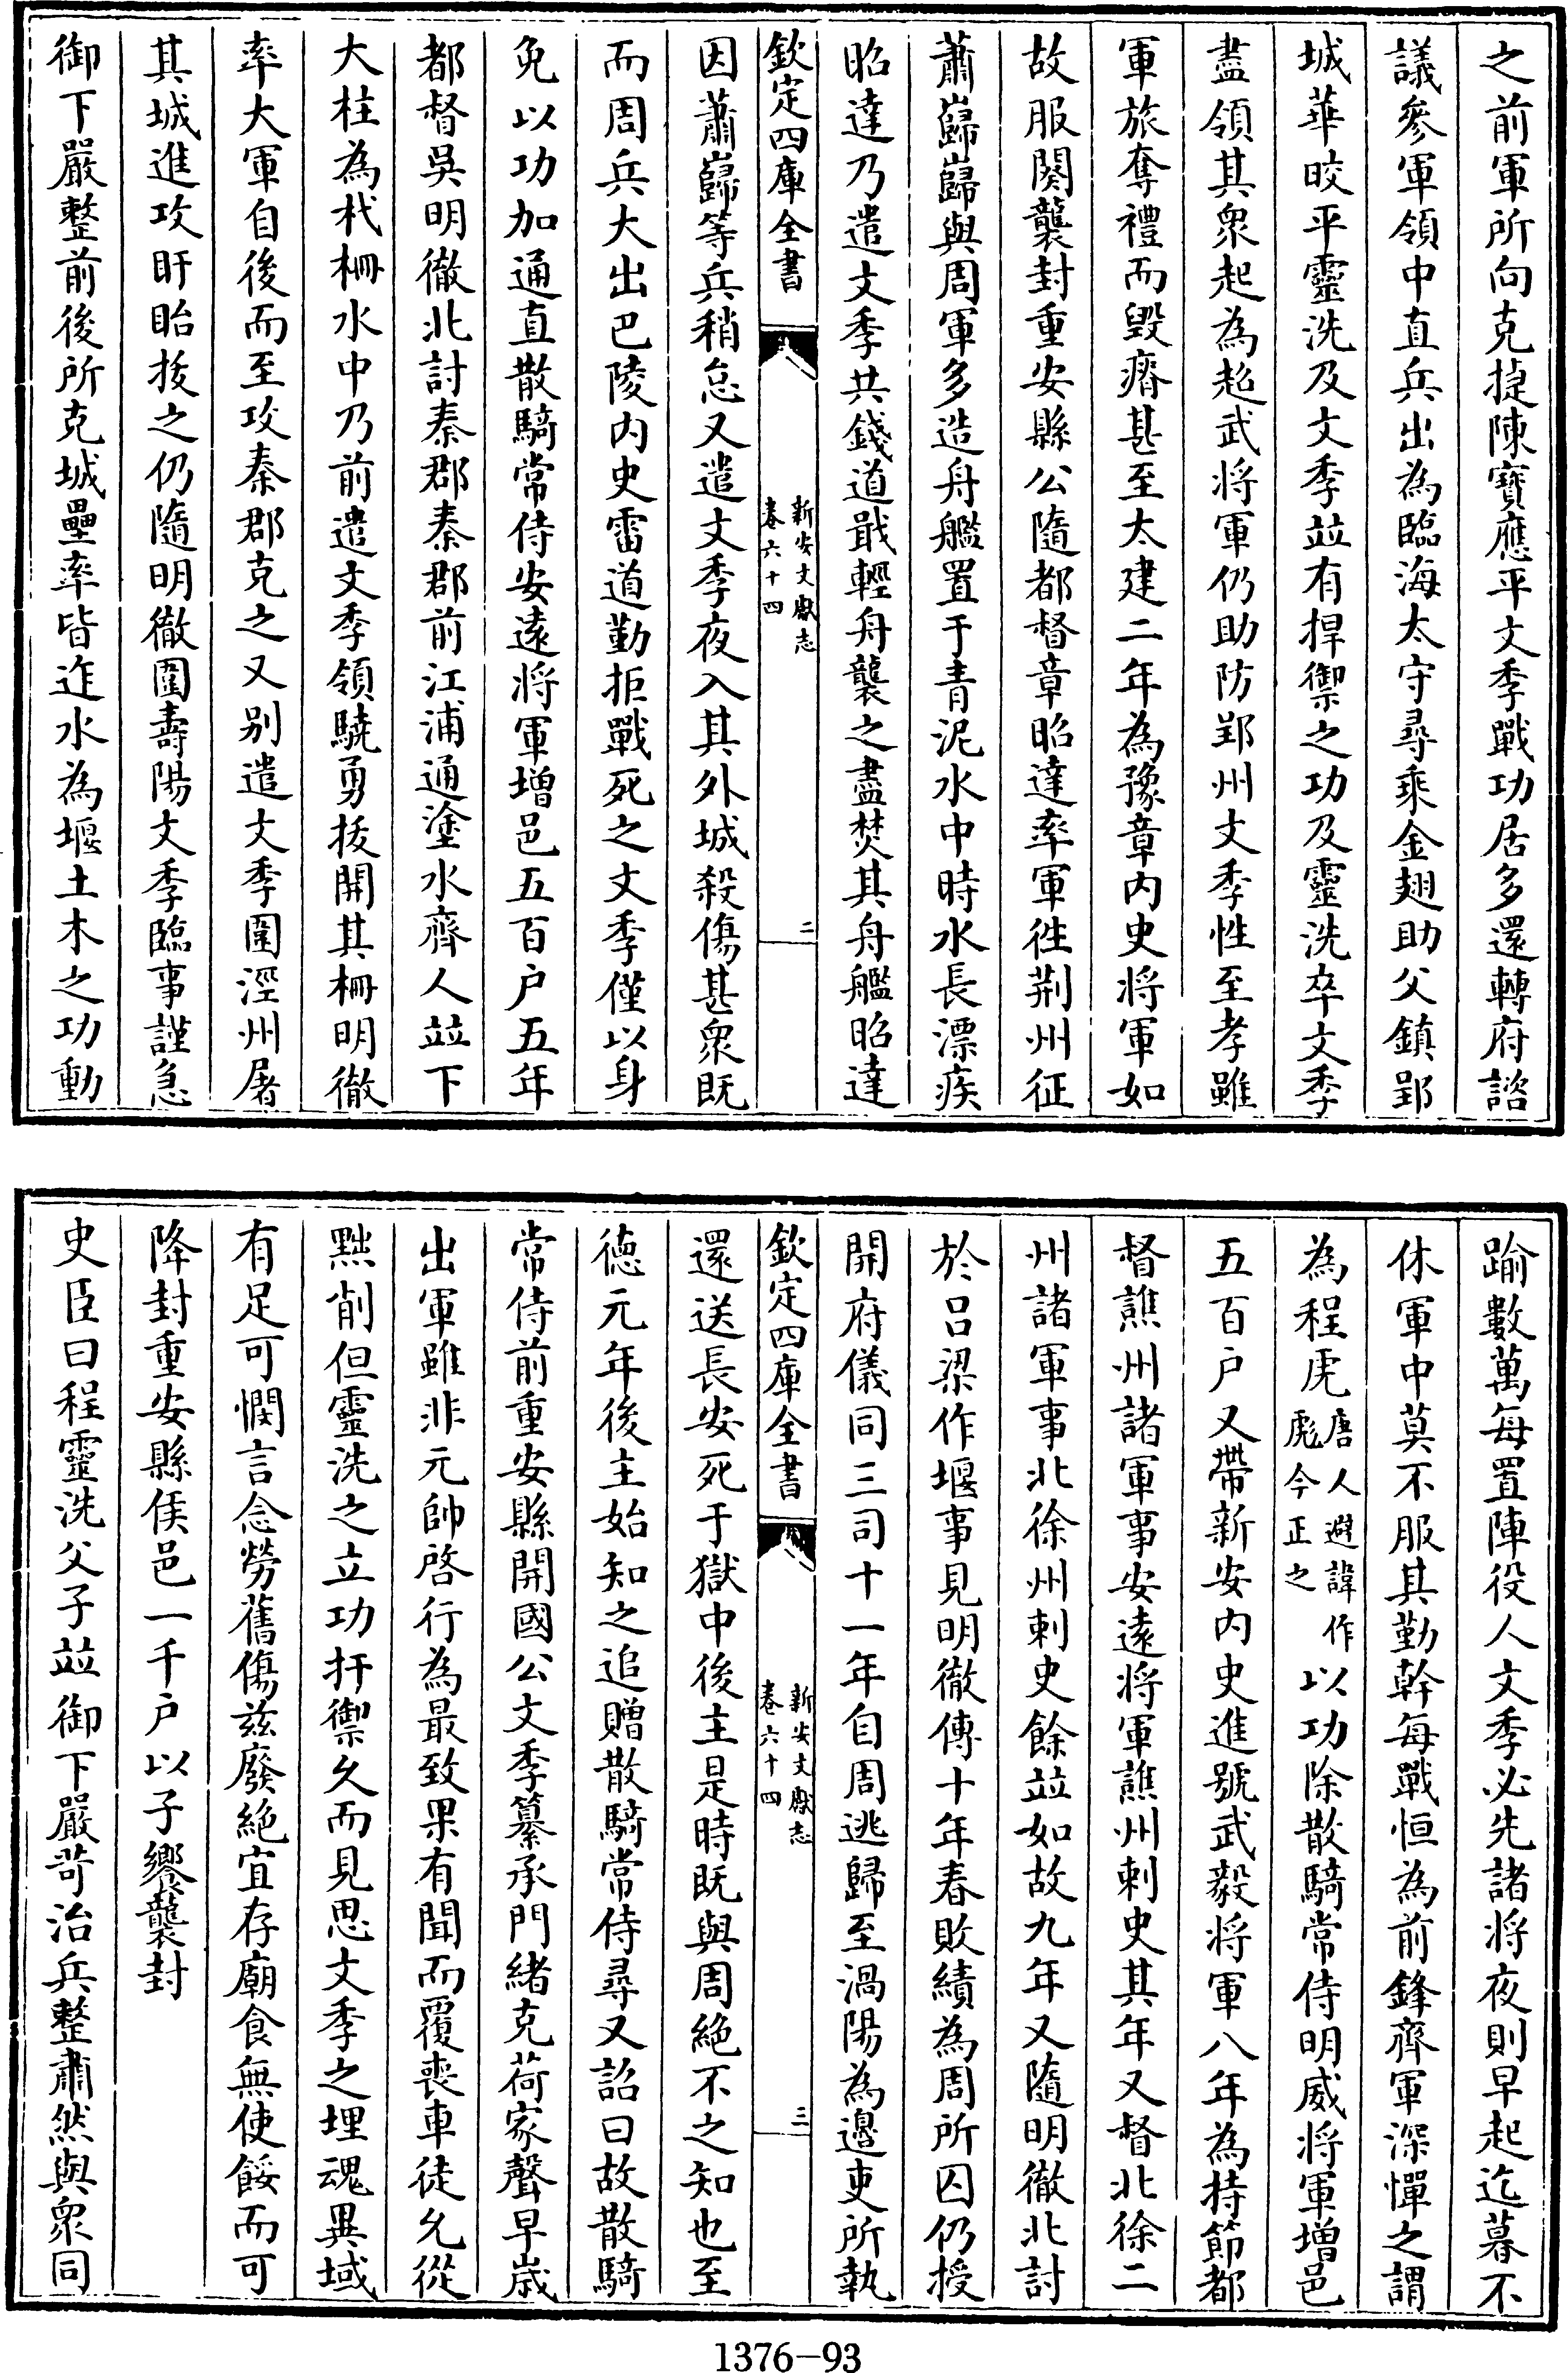 之前軍所向克捷陳寶應平文季戰功居多還轉府諮
議參軍領中直兵出為臨海太守尋乘金翅助父鎮郢
城華皎平靈洗及文季並有捍禦之功及靈洗卒文季
盡領其衆起為超武將軍仍助防郢州文季性至孝雖
軍旅奪禮而毀瘠甚至太建二年為豫章內史將軍如
故服闋襲封重安縣公隨都督章昭達率軍徃荆州征
蕭巋巋與周軍多造舟艦置于青泥水中時水長漂疾
昭達乃遣文季共錢道戢輕舟襲之盡焚其舟艦昭達
欽定四庫全書
新安文獻志
卷六十四
二
因蕭巋等兵稍怠又遣文季夜入其外城殺傷甚衆既
而周兵大出巴陵內史雷道勤拒戰死之文季僅以身
免以功加通直散騎常侍安遠將軍增邑五百户五年
都督吳明徹北討秦郡秦郡前江浦通塗水齊人並下
大柱為杙柵水中乃前遣文季領驍勇拔開其柵明徹
率大軍自後而至攻秦郡克之又别遣文季圍涇州屠
其城進攻盱眙拔之仍隨明徹圍壽陽文季臨事謹急
御下嚴整前後所克城壘率皆迮水為堰土木之功動
踰數萬每置陣役人文季必先諸將夜則早起迄暮不
休軍中莫不服其勤幹每戰恒為前鋒齊軍深憚之謂
為程虎唐人避諱作彪今正之以功除散騎常侍明威將軍增邑
五百户又帶新安內史進號武毅將軍八年為持節都
督譙州諸軍事安遠將軍譙州刺史其年又督北徐二
州諸軍事北徐州刺史餘並如故九年又隨明徹北討
於呂梁作堰事見明徹傳十年春敗績為周所囚仍授
開府儀同三司十一年自周逃歸至渦陽為邉吏所執
欽定四庫全書
新安文獻志
卷六十四
三
還送長安死于獄中後主是時既與周絶不之知也至
德元年後主始知之追贈散騎常侍尋又詔曰故散騎
常侍前重安縣開國公文季纂承門緒克荷家聲早歲
出軍雖非元帥啓行為最致果有聞而覆喪車徒允從
黜削但靈洗之立功扞禦久而見思文季之埋魂異域
有足可憫言念勞舊傷茲廢絶宜存廟食無使餒而可
降封重安縣侯邑一千户以子饗襲封
史臣曰程靈洗父子並御下嚴苛治兵整肅然與衆同
1376-93